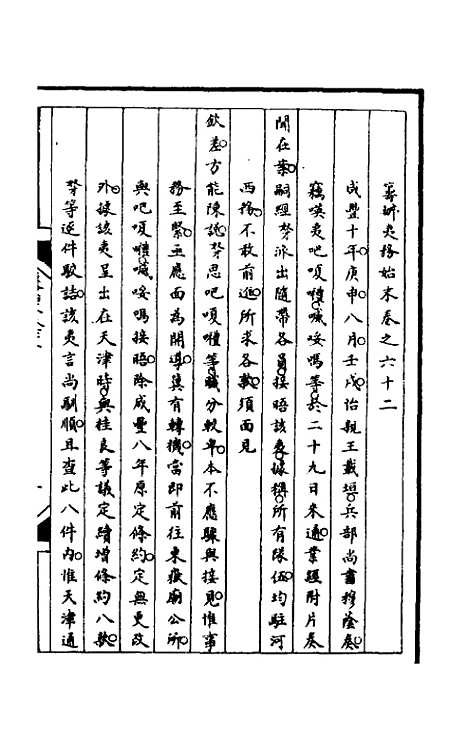 籌辦夷務始末卷之六十二
咸豐十年庚申八月壬戌怡親王載垣兵部尚書穆蔭奏
竊嘆夷吧嗄𡃤嘁妥嗎等於二十九日來通業經附片奏
聞在案嗣經弩派出隨帶各員接晤該夷據稱所有隊伍均駐河
西務不敢前進所求各款須面見
欽差方能陳訴弩思吧嗄𡃤等職分較卑本不應驟與接見惟事
務至緊亟應面為開導冀有轉機當即前往東嶽廟公所
與吧嗄𡃤嘁妥嗎接晤除咸豐八年原定條約定無更改
外據該夷呈出在天津時與桂良等議定續增條約八款
弩等逐件駁詰該夷言尚馴順且查此八件內惟天津通